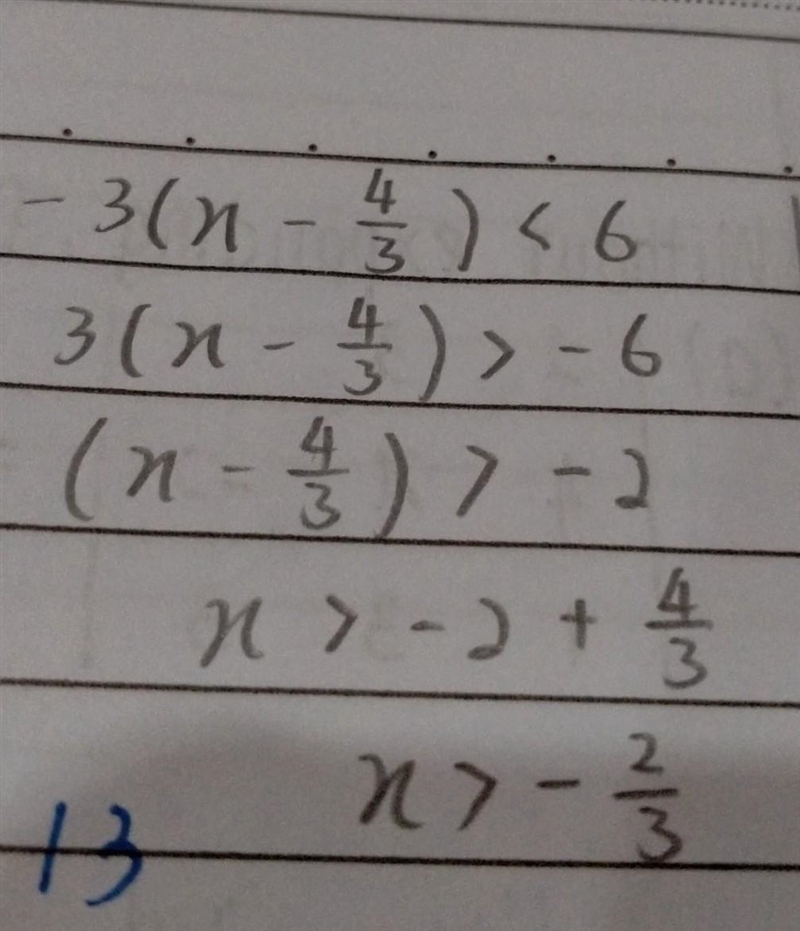 -3(x - 4/3) < 6
3(x - 4/3) > -6
(x - 4/3) > -2
x > -2 + 4/3
x > -2/3
13